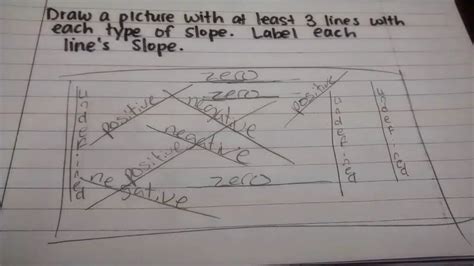 Draw a picture with at least 3 lines with
each type of slope. Label each
line's slope.
zero
zero
undefined
positive
negative
positive
undefined
undefined
negative
positive
negative
zero